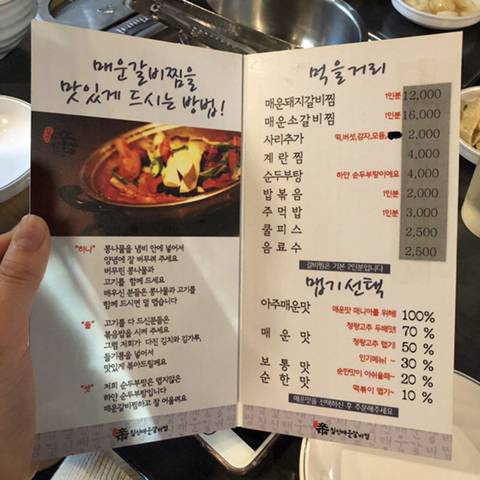 매운갈비찜을
맛있게 드시는 방법!
"하나" 콩나물을 냄비 안에 넣어서
양념에 잘 버무려 주세요
버무린 콩나물과
고기를 함께 드세요
매우신 분들은 콩나물과 고기를
함께 드시면 덜 맵습니다
"둘" 고기를 다 드신분들은
볶음밥을 시켜 주세요
그럼 저희가 다진 김치와 김가루,
들기름을 넣어서
맛있게 볶아드릴께요
"셋" 저희 순두부탕은 맵지않은
하얀 순두부탕입니다
매운갈비찜하고 잘 어울려요
먹을거리
매운돼지갈비찜 1인분 12,000
매운소갈비찜 1인분 16,000
사리추가 떡,버섯,감자,모듬, 2,000
계란찜 4,000
순두부탕 하얀 순두부탕이에요 4,000
밥볶음 1인분 2,000
주먹밥 1인분 3,000
쿨피스 2,500
음료수 2,500
갈비찜은 기본 2인분입니다
맵기선택
아주매운맛 매운맛 매니아를 위해! 100%
청량고추 두배맛! 70 %
매운맛 청량고추 맵기! 50 %
보통맛 인기메뉴! ~ 30 %
순한맛 순한맛이 아쉬울때~ 20 %
떡볶이 맵기~ 10 %
매운맛을 선택하신 후 주문해주세요